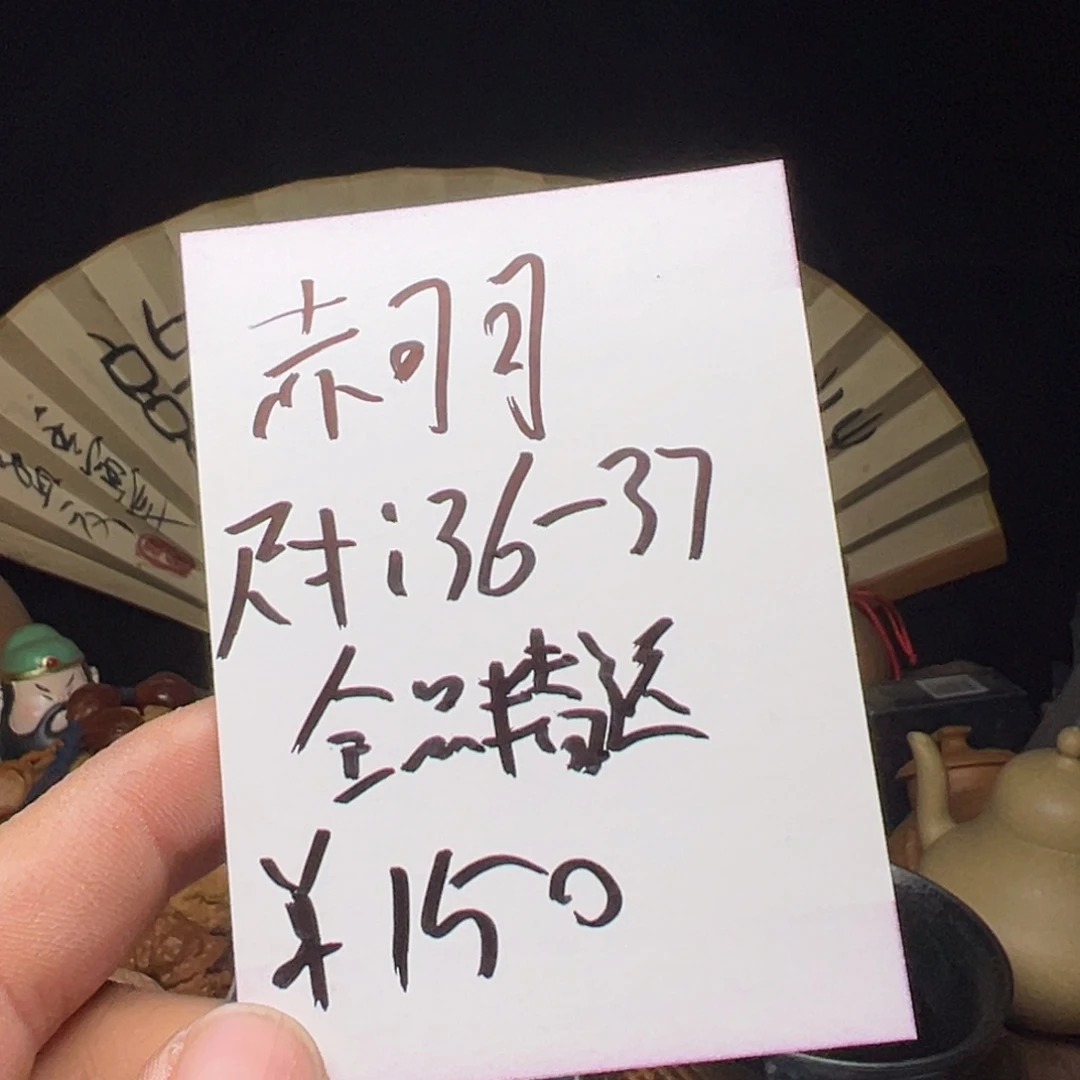 赤羽
尺寸:36-37
全品精选
¥150